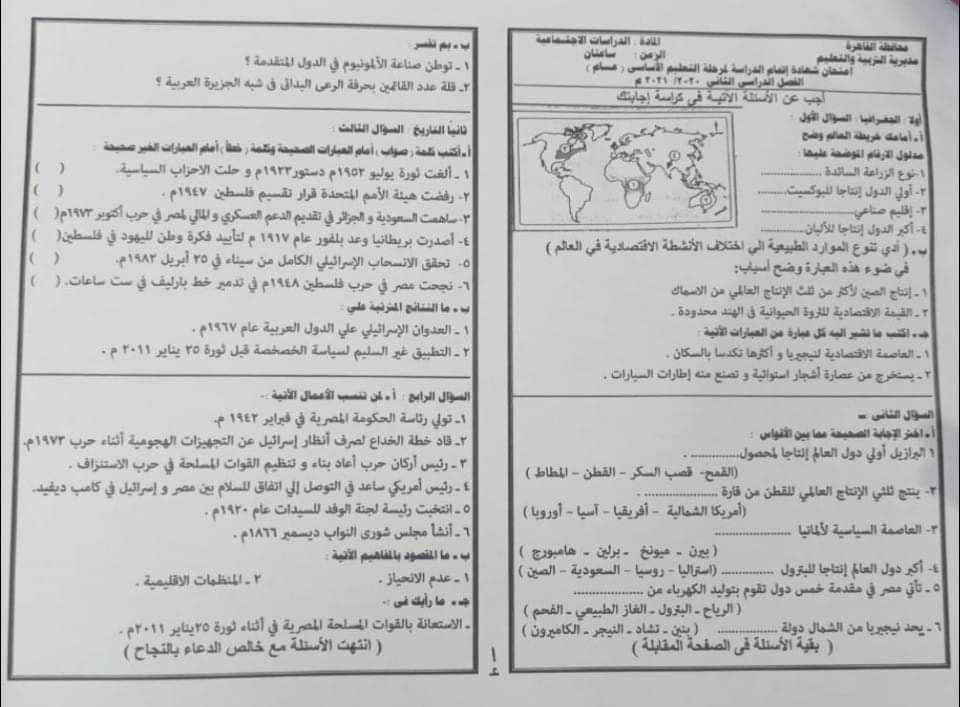 محافظة القاهرة
مديرية التربية والتعليم
المادة : الدراسات الاجتماعية
الزمن : ساعتان
امتحان شهادة إتمام الدراسة لمرحلة التعليم الأساسى ( مسائى )
الفصل الدراسى الثانى ٢٠٢٠/ ٢٠٢١ م
أجب عن الأسئلة الآتية في كراسة إجابتك
أولا : الجغرافيا : السؤال الأول :
أ - أمامك خريطة العالم وضح
مدلول الأرقام الموضحة عليها :
١- نوع الزراعة السائدة ............
٢- أولي الدول إنتاجا للبوكسيت ............
٣- إقليم صناعي ............
٤- أكبر الدول إنتاجا للألبان ............
ب - ( أدي تنوع الموارد الطبيعية الي اختلاف الأنشطة الاقتصادية في العالم )
في ضوء هذه العبارة وضح أسباب:
١ - إنتاج الصين لأكثر من ثلث الإنتاج العالمي من الأسماك
٢ - القيمة الاقتصادية للثروة الحيوانية في الهند محدودة .
جـ - اكتب ما تشير اليه كل عبارة من العبارات الآتية :
١ - العاصمة الاقتصادية لنيجيريا و أكثرها ازدحاما بالسكان .
٢ - يستخرج من عصارة أشجار استوائية و تصنع منه إطارات السيارات .
السؤال الثانى :-
أ - اختر الإجابة الصحيحة مما بين الأقواس :
١ البرازيل أولي دول العالم إنتاجا لمحصول ............ .
(القمح- قصب السكر - القطن - المطاط )
٢- ينتج ثلثي الإنتاج العالمي للقطن من قارة ............ .
(أمريكا الشمالية - أفريقيا - آسيا - أوروبا )
٣- العاصمة السياسية لألمانيا ............
( بون - ميونخ - برلين - هامبورج )
٤- أكبر دول العالم إنتاجا للبترول ............ (استراليا - روسيا - السعودية - الصين )
٥ - تأتي مصر في مقدمة خمس دول تقوم بتوليد الكهرباء من ............
( الرياح - البترول - الغاز الطبيعي - الفحم )
٦ - يحد نيجيريا من الشمال دولة ............ ( بنين - تشاد - النيجر - الكاميرون )
( بقية الأسئلة في الصفحة المقابلة )
ب - بم تفسر :
١ - توطن صناعة الألمونيوم في الدول المتقدمة ؟
٢- قلة عدد القائمين بحرفة الرعي البدائي في شبه الجزيرة العربية ؟
ثانيا التاريخ : السؤال الثالث :
أ - أكتب كلمة ( صواب ) أمام العبارات الصحيحة وكلمة ( خطأ ) أمام العبارات الغير صحيحة
١ - ألغت ثورة يوليو ١٩٥٢م دستور١٩٢٣م و حلت الأحزاب السياسية. ( )
٢- رفضت هيئة الأمم المتحدة قرار تقسيم فلسطين ١٩٤٧م . ( )
٣- ساهمت السعودية و الجزائر في تقديم الدعم العسكري و المالي لمصر في حرب أكتوبر ١٩٧٣م( )
٤- أصدرت بريطانيا وعد بلفور عام ١٩١٧ م لتأييد فكرة وطن لليهود في فلسطين( )
٥- تحقق الانسحاب الإسرائيلي الكامل من سيناء في ٢٥ أبريل ١٩٨٢م. ( )
٦- نجحت مصر في حرب فلسطين ١٩٤٨م في تدمير خط بارليف في ست ساعات. ( )
ب - ما النتائج المترتبة على :
١ - العدوان الإسرائيلي علي الدول العربية عام ١٩٦٧م .
٢ - التطبيق غير السليم لسياسة الخصخصة قبل ثورة ٢٥ يناير ٢٠١١ م .
السؤال الرابع : أ - لمن تنسب الأعمال الآتية :-
١- تولي رئاسة الحكومة المصرية في فبراير ١٩٤٢ م.
٢- قاد خطة الخداع لصرف أنظار إسرائيل عن التجهيزات الهجومية أثناء حرب ١٩٧٣م.
٣ - رئيس أركان حرب أعاد بناء و تنظيم القوات المسلحة في حرب الاستنزاف .
٤ - رئيس أمريكي ساعد في التوصل إلي اتفاق للسلام بين مصر و إسرائيل في كامب ديفيد.
٥ - انتخبت رئيسة لجنة الوفد للسيدات عام ١٩٢٠م .
٦ - أنشأ مجلس شورى النواب ديسمبر ١٨٦٦م .
ب - ما المقصود بالمفاهيم الآتية :
١ - عدم الانحياز . ٢ - المنظمات الإقليمية .
جـ - ما رأيك فى :-
- الاستعانة بالقوات المسلحة المصرية في أثناء ثورة ٢٥يناير٢٠١١م .
( انتهت الأسئلة مع خالص الدعاء بالنجاح )